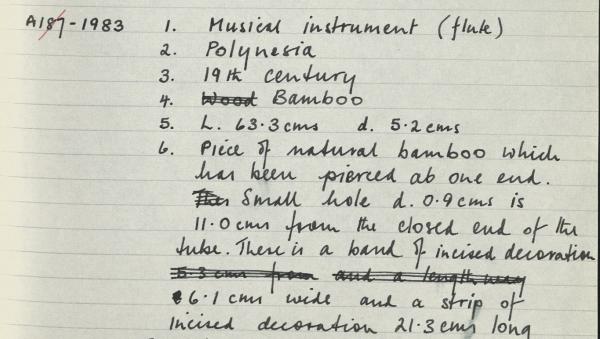 A187-1983 1. Musical instrument (flute)
2. Polynesia
3. 19th century
4. Wood Bamboo
5. L. 63.3 cms d. 5.2 cms
6. Piece of natural bamboo which
has been pierced at one end.
Small hole d. 0.9 cms is
11.0 cms from the closed end of the
tube. There is a band of incised decoration
5.3 cms from and a length
6.1 cms wide and a strip of
incised decoration 21.3 cms long